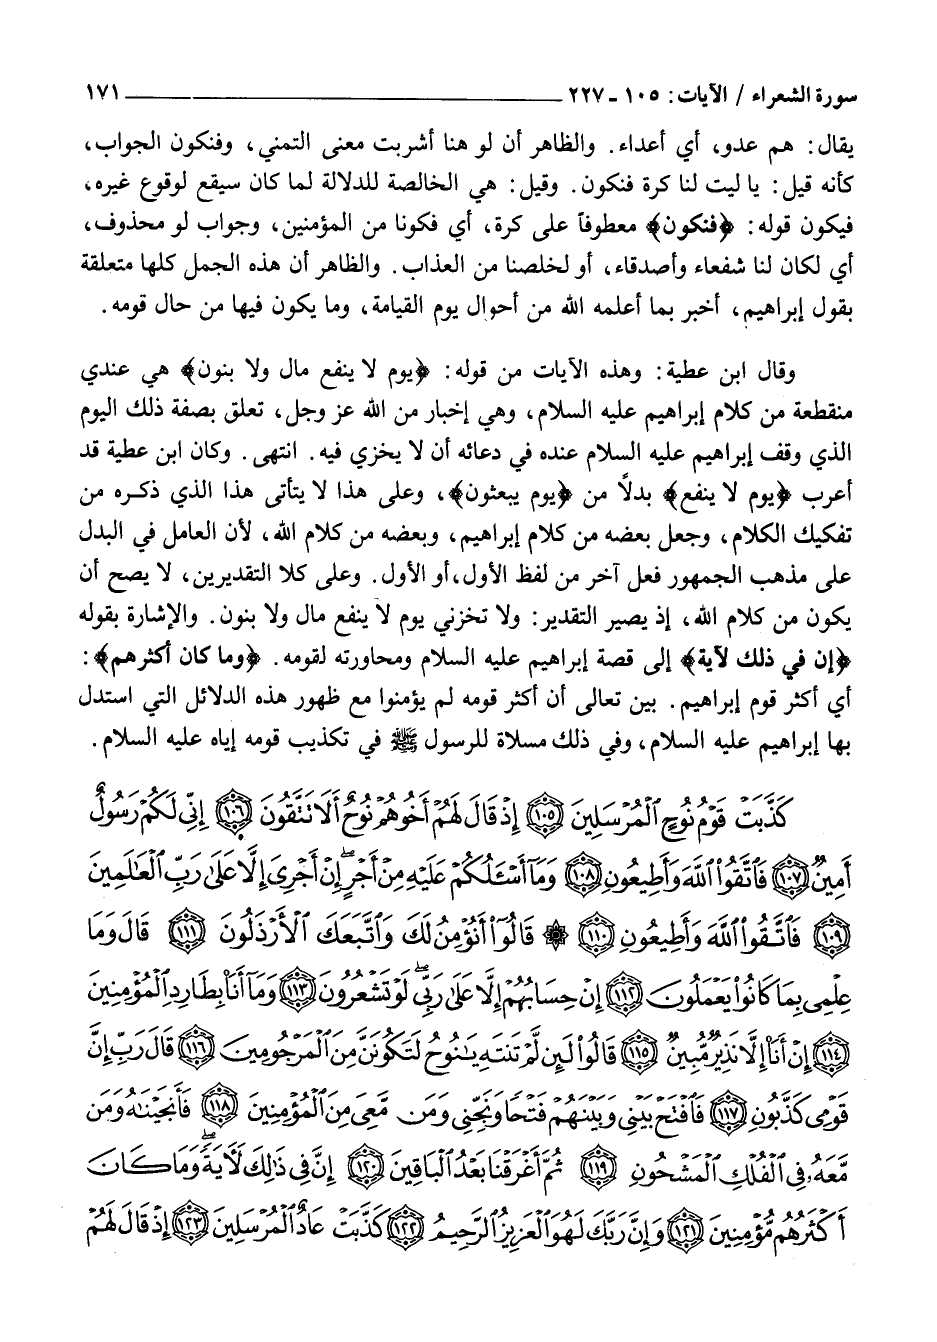 سورة الشعراء / الآيات: ١٠٥ - ٢٢٧ ١٧١
يقال: هم عدو، أي أعداء. والظاهر أن لو هنا أشربت معنى التمني، وفنكون الجواب،
كأنه قيل: يا ليت لنا كرة فنكون. وقيل: هي الخالصة للدلالة لما كان سيقع لوقوع غيره،
فيكون قوله: ﴿فنكون﴾ معطوفاً على كرة، أي فكونا من المؤمنين، وجواب لو محذوف،
أي لكان لنا شفعاء وأصدقاء، أو لخلصنا من العذاب. والظاهر أن هذه الجمل كلها متعلقة
بقول إبراهيم، أخبر بما أعلمه الله من أحوال يوم القيامة، وما يكون فيها من حال قومه.
وقال ابن عطية: وهذه الآيات من قوله: ﴿يوم لا ينفع مال ولا بنون﴾ هي عندي
منقطعة من كلام إبراهيم عليه السلام، وهي إخبار من الله عز وجل، تعلق بصفة ذلك اليوم
الذي وقف إبراهيم عليه السلام عنده في دعائه أن لا يخزي فيه. انتهى. وكان ابن عطية قد
أعرب ﴿يوم لا ينفع﴾ بدلاً من ﴿يوم يبعثون﴾، وعلى هذا لا يتأتى هذا الذي ذكره من
تفكيك الكلام، وجعل بعضه من كلام إبراهيم، وبعضه من كلام الله، لأن العامل في البدل
على مذهب الجمهور فعل آخر من لفظ الأول، أو الأول. وعلى كلا التقديرين، لا يصح أن
يكون من كلام الله، إذ يصير التقدير: ولا تخزني يوم لا ينفع مال ولا بنون. والإشارة بقوله
﴿إن في ذلك لآية﴾ إلى قصة إبراهيم عليه السلام ومحاورته لقومه. ﴿وما كان أكثرهم﴾:
أي أكثر قوم إبراهيم. بين تعالى أن أكثر قومه لم يؤمنوا مع ظهور هذه الدلائل التي استدل
بها إبراهيم عليه السلام، وفي ذلك مسلاة للرسول ﷺ في تكذيب قومه إياه عليه السلام.
كَذَّبَتْ قَوْمُ نُوحٍ ٱلْمُرْسَلِينَ ١٠٥ إِذْ قَالَ لَهُمْ أَخُوهُمْ نُوحٌ أَلَا تَتَّقُونَ ١٠٦ إِنِّي لَكُمْ رَسُولٌ
أَمِينٌ ١٠٧ فَٱتَّقُوا۟ ٱللَّهَ وَأَطِيعُونِ ١٠٨ وَمَآ أَسْـَٔلُكُمْ عَلَيْهِ مِنْ أَجْرٍ ۖ إِنْ أَجْرِىَ إِلَّا عَلَىٰ رَبِّ ٱلْعَـٰلَمِينَ
١٠٩ فَٱتَّقُوا۟ ٱللَّهَ وَأَطِيعُونِ ١١٠ ۞ قَالُوٓا۟ أَنُؤْمِنُ لَكَ وَٱتَّبَعَكَ ٱلْأَرْذَلُونَ ١١١ قَالَ وَمَا
عِلْمِى بِمَا كَانُوا۟ يَعْمَلُونَ ١١٢ إِنْ حِسَابُهُمْ إِلَّا عَلَىٰ رَبِّى ۖ لَوْ تَشْعُرُونَ ١١٣ وَمَآ أَنَا۠ بِطَارِدِ ٱلْمُؤْمِنِينَ
١١٤ إِنْ أَنَا۠ إِلَّا نَذِيرٌ مُّبِينٌ ١١٥ قَالُوا۟ لَئِن لَّمْ تَنتَهِ يَـٰنُوحُ لَتَكُونَنَّ مِنَ ٱلْمَرْجُومِينَ ١١٦ قَالَ رَبِّ إِنَّ
قَوْمِى كَذَّبُونِ ١١٧ فَٱفْتَحْ بَيْنِى وَبَيْنَهُمْ فَتْحًا وَنَجِّنِى وَمَن مَّعِىَ مِنَ ٱلْمُؤْمِنِينَ ١١٨ فَأَنجَيْنَـٰهُ وَمَن
مَّعَهُۥ فِى ٱلْفُلْكِ ٱلْمَشْحُونِ ١١٩ ثُمَّ أَغْرَقْنَا بَعْدُ ٱلْبَاقِينَ ١٢٠ إِنَّ فِى ذَٰلِكَ لَـَٔايَةً ۖ وَمَا كَانَ
أَكْثَرُهُم مُّؤْمِنِينَ ١٢١ وَإِنَّ رَبَّكَ لَهُوَ ٱلْعَزِيزُ ٱلرَّحِيمُ ١٢٢ كَذَّبَتْ عَادٌ ٱلْمُرْسَلِينَ ١٢٣ إِذْ قَالَ لَهُمْ